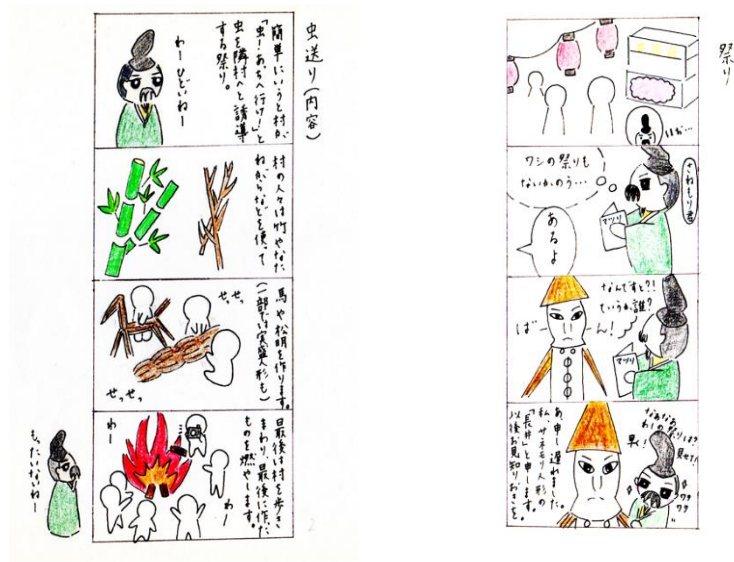 祭り
いが…
さねもり君
ワシの祭りも
ないかのう…
マツリ
あるよ
なんですと?!
ていうか、誰?
ばーん!
マツリ
わしの祭りは?
見せて!
早く!
ワクワク
あ、申し遅れました。
私、サネモリ人形の
「長井」と申します。
以後お見知りおきを。
虫送り(内容)
簡単にいうと村が、
「虫!あっちへ行け!」と
虫を隣村へと誘導
する祭り。
わーひどいねー
村の人々は竹やなた
ねがらなどを使って
馬や松明を作ります。
(一部では実盛人形も)
せっせっ
せっせっ
最後は村を歩き
まわり、最後に作った
ものを燃やします。
わー
わー
もったいないねー
2